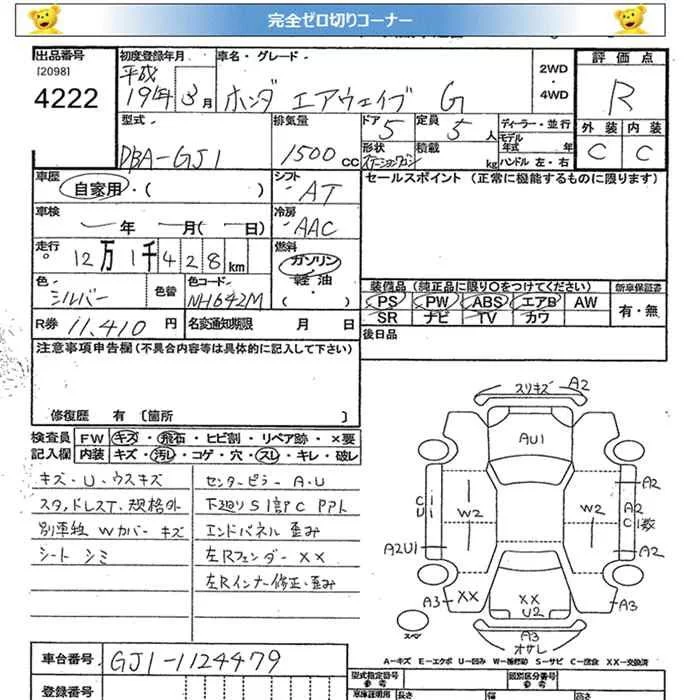 完全ゼロ切りコーナー
出品番号
[2098]
4222
初度登録年月
平成
19年3月
車名・グレード
ホンダ エアウェイブ G
2WD
・
4WD
評価点
R
外装 内装
C C
型式
DBA-GJ1
排気量
1500cc
ドア
5
形状
ステーションワゴン
定員
5人
積載
kg
ディーラー・並行
モデル
年式 年
ハンドル 左・右
車歴
自家用・( )
シフト
AT
セールスポイント (正常に機能するものに限ります)
車検
年 月(日)
冷房
AAC
走行
12万1千428km
燃料
ガソリン
軽油
( )
色
シルバー
色替
色コード
NH642M
装備品(純正品に限り○をつけてください)
PS PW ABS エアB AW
SR ナビ TV カワ
新車保証書
有・無
R券 11,410円
名変通知期限 月 日
後日品
注意事項申告欄(不具合内容等は具体的に記入して下さい)
修復歴 有 [箇所 ]
検査員
記入欄
FW キズ・飛石・ヒビ割・リペア跡・×要
内装 キズ・汚レ・コゲ・穴・スレ・キレ・破レ
キズ・U・ウスキズ
スタッドレスT、規格外
別車輪 Wカバー キズ
シート シミ
センターピラー A・U
下廻り S1部C PPト
エンドパネル 歪み
左Rフェンダー XX
左Rインナー修正・歪み
スリキズ A2
AU1
A2
C1
U1
W2
W2
A2
C1数
A2U1
A2
A3
XX
XX
U2
A3
スペア
A3
オサレ
A-キズ E-エクボ U-凹み W-補修跡 S-サビ C-腐食 XX-交換済
車台番号
GJ1-1124479
登録番号
型式指定番号
参考
類別区分番号
参考
車庫証明用
長さ
幅
高さ